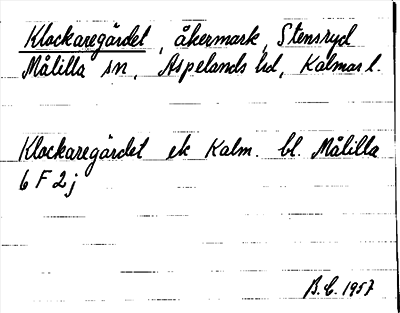 Klockaregärdet, åkermark, Stensryd
Målilla sn, Aspelands hd, Kalmar l.
Klockaregärdet ek Kalm. bl. Målilla
6 F 2 j
B.C. 1957